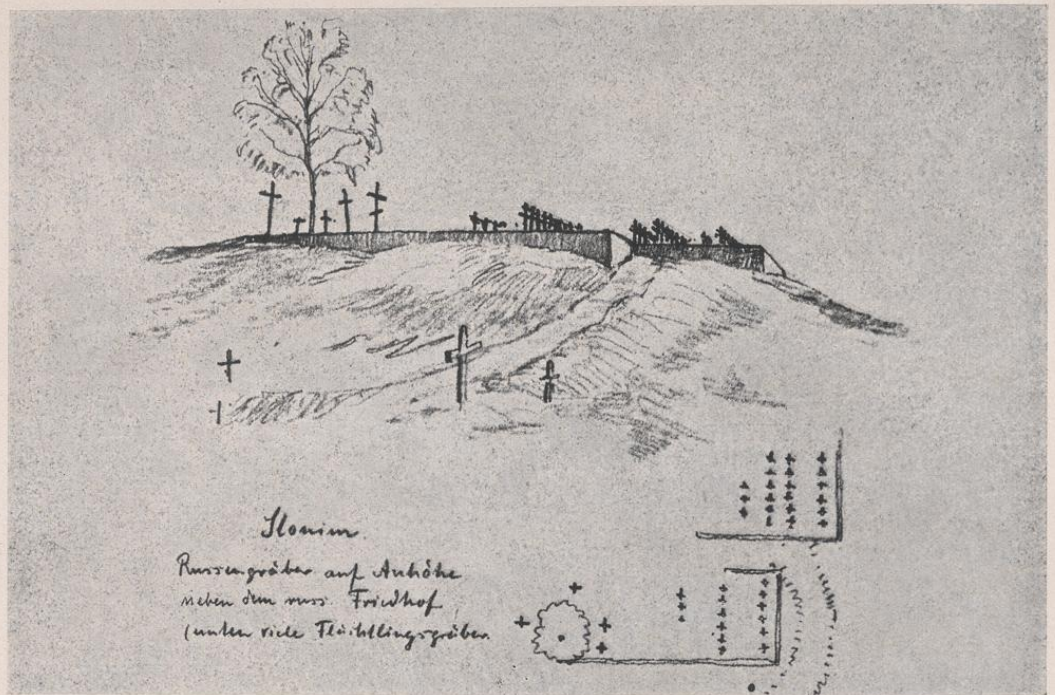 Slonim
Russengräber auf Anhöhe
neben dem russ. Friedhof
(unten viele Flüchtlingsgräber.